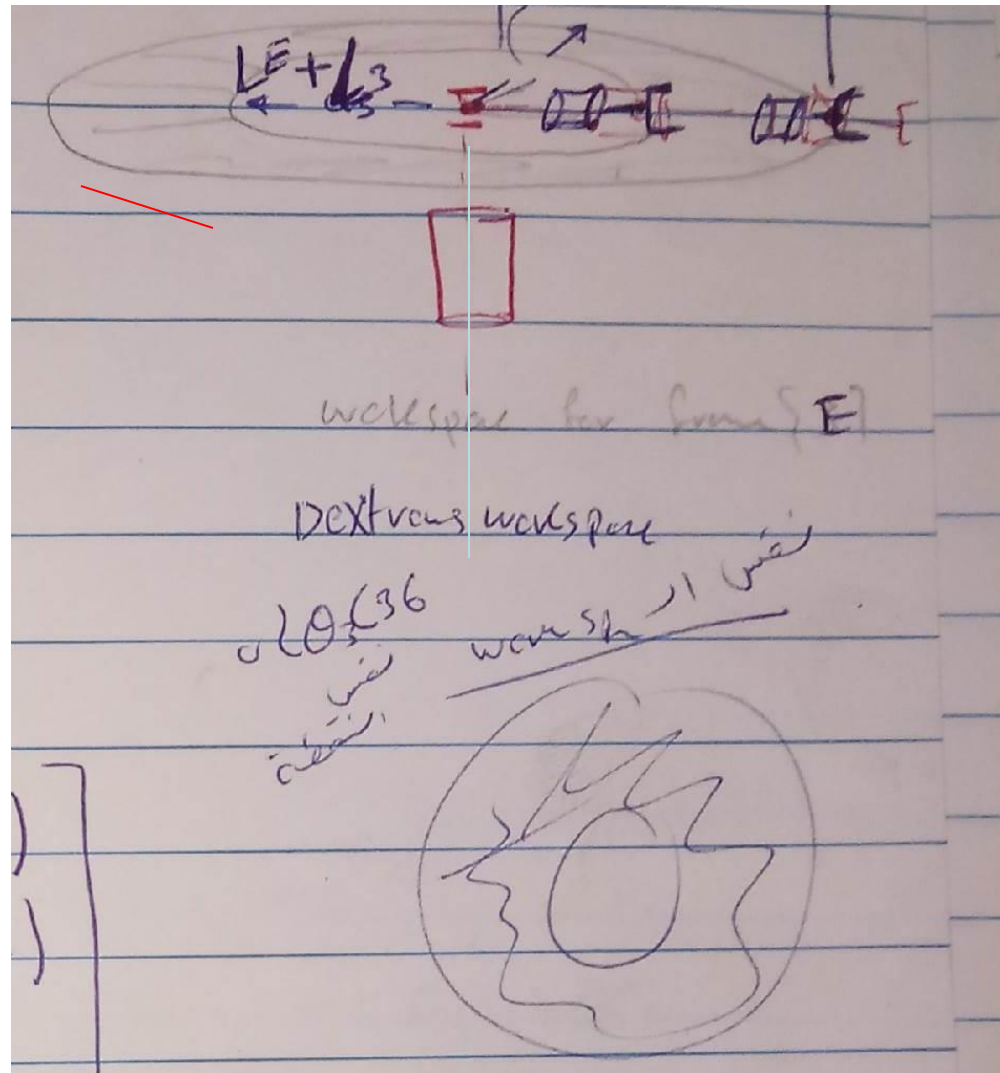 L^E + L_3
workspace for frame {E}
Dextrous workspace
نفس ال worksp
0 < θ_3 < 36
نفس
النقطة